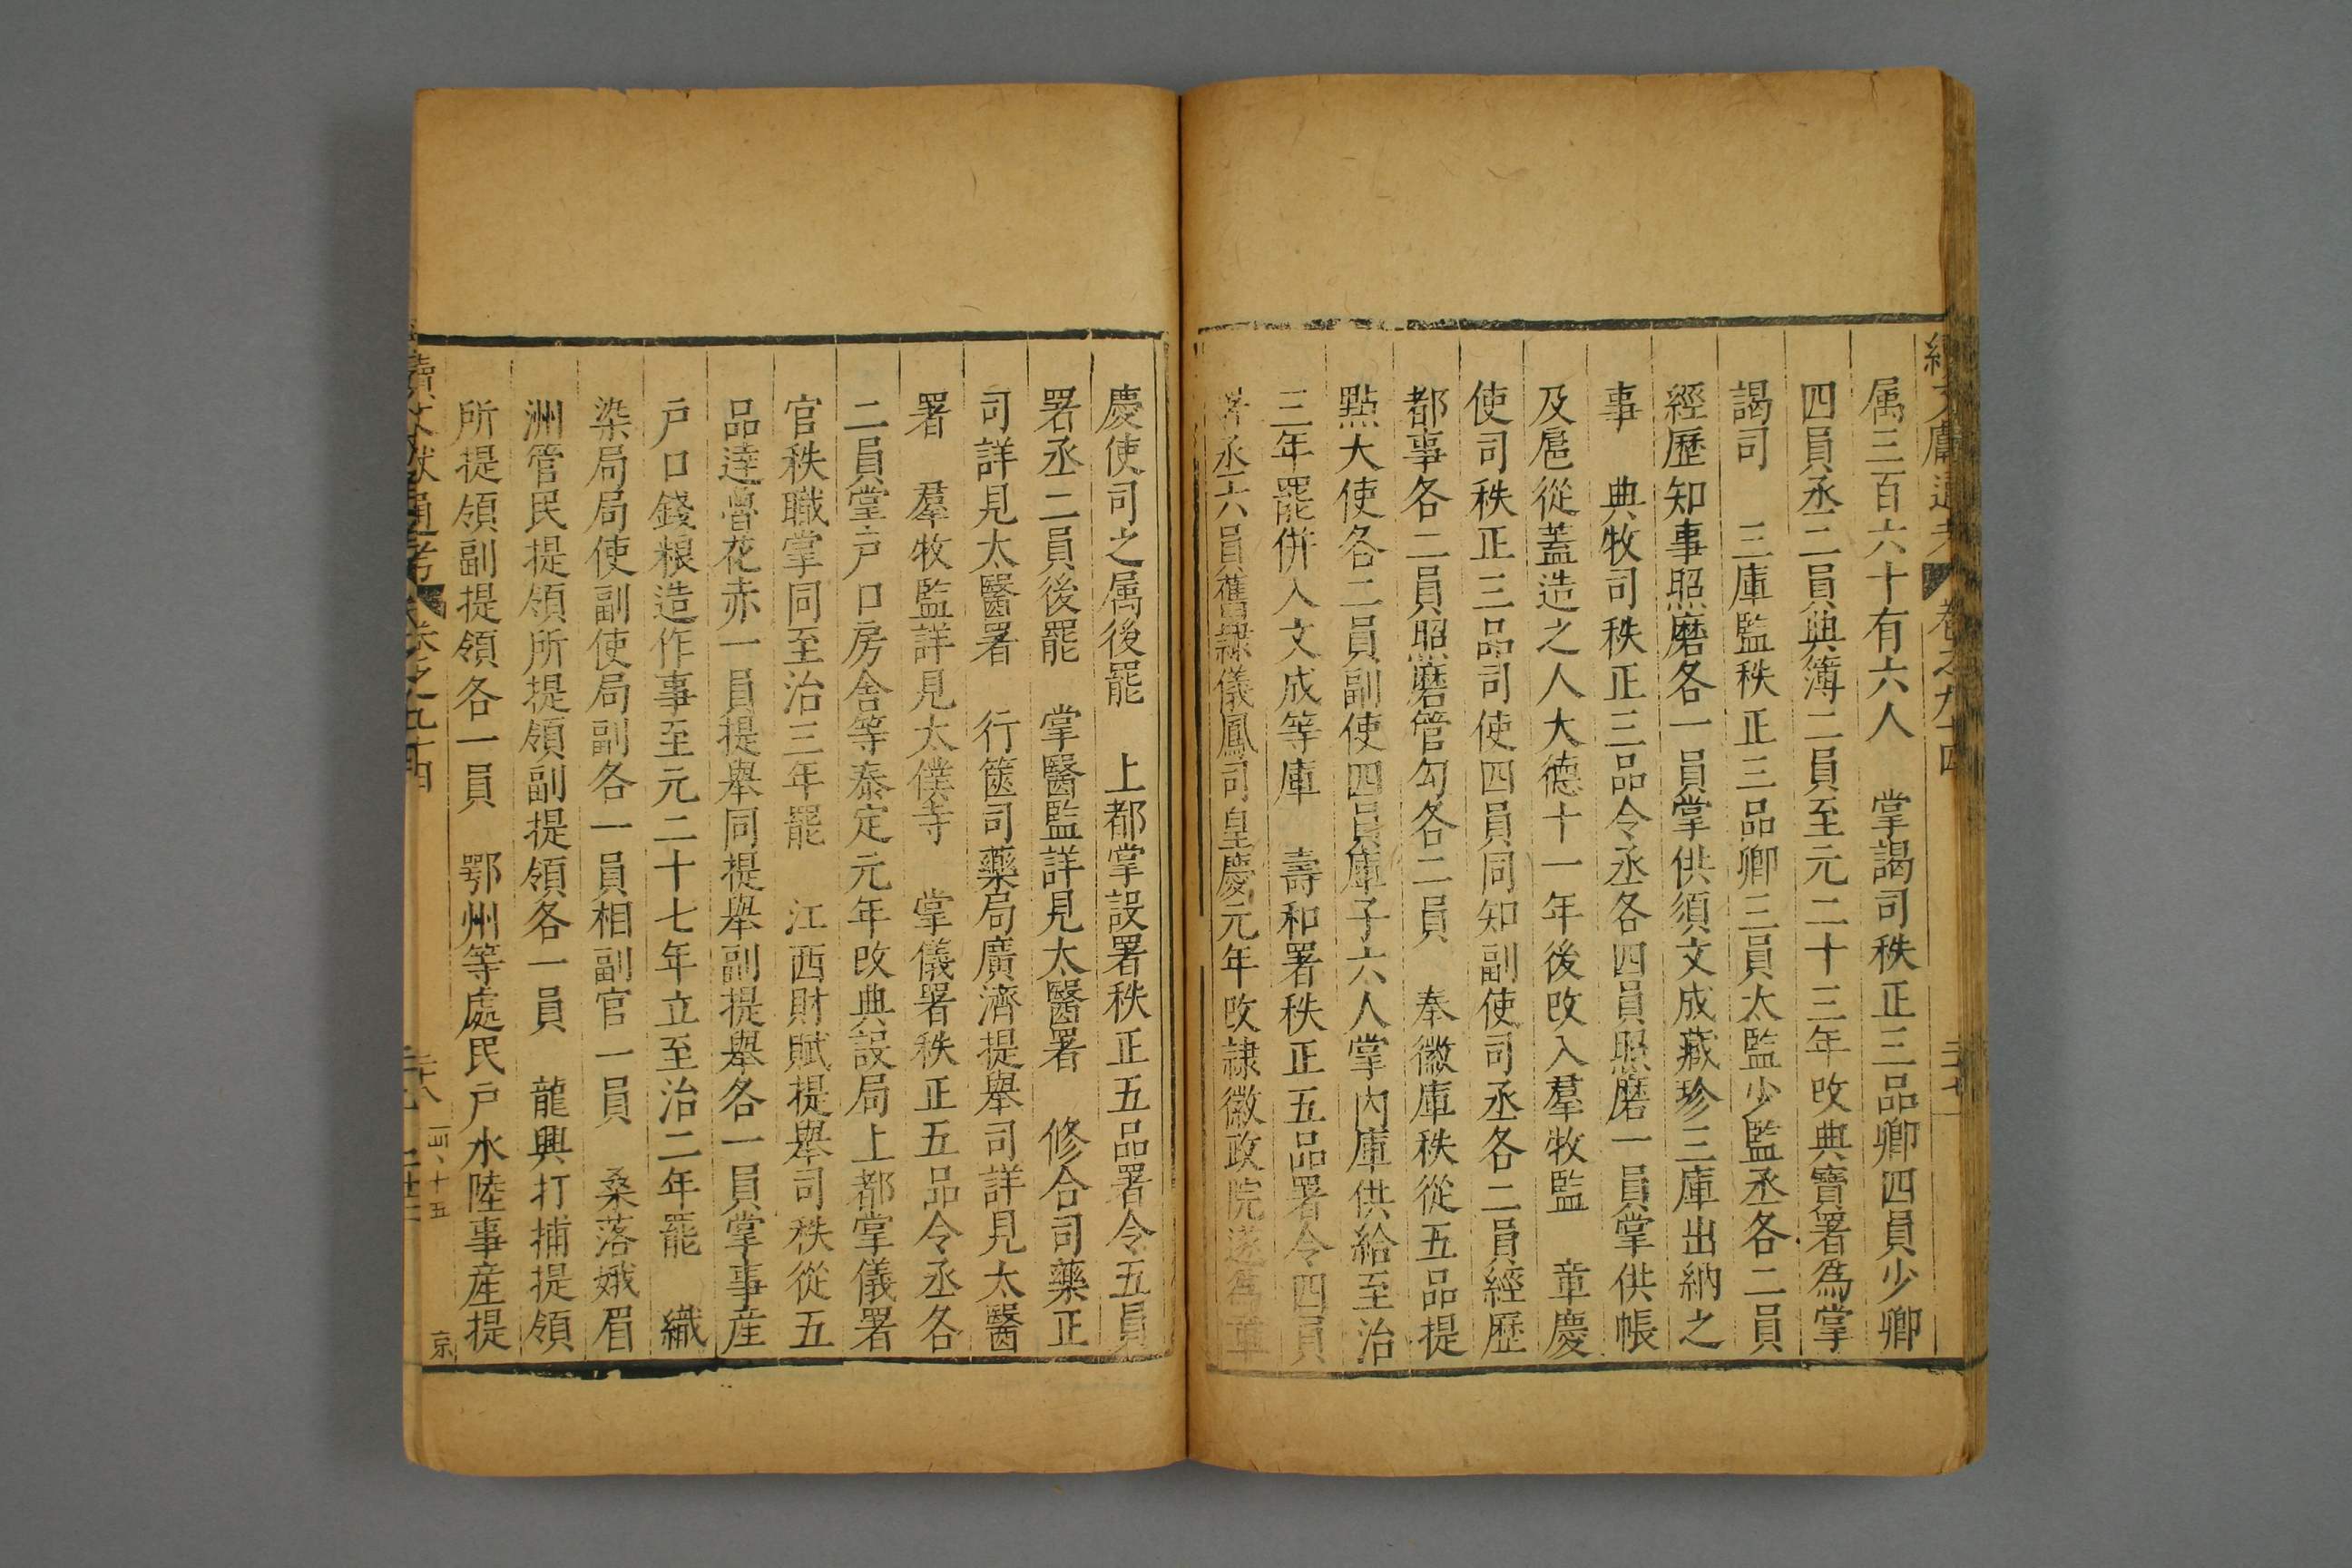 續文獻通考 卷之九十四 三十七
属三百六十有六人　掌謁司秩正三品卿四員少卿
四員丞二員典簿二員至元二十三年改典寶署為掌
謁司　三庫監秩正三品卿三員太監少監丞各二員
經歷知事照磨各一員掌供須文成藏珍三庫出納之
事　典牧司秩正三品令丞各四員照磨一員掌供帳
及扈從蓋造之人大德十一年後改入羣牧監　章慶
使司秩正三品司使四員同知副使司丞各二員經歷
都事各二員照磨管勾各二員　奉徽庫秩從五品提
點大使各二員副使四員庫子六人掌內庫供給至治
三年罷併入文成等庫　壽和署秩正五品署令四員
署丞六員舊隸儀鳳司皇慶元年改隸徽政院遂為章
慶使司之属後罷　上都掌設署秩正五品署令五員
署丞二員後罷　掌醫監詳見太醫署　修合司藥正
司詳見太醫署　行篋司藥局廣濟提舉司詳見太醫
署　羣牧監詳見太僕寺　掌儀署秩正五品令丞各
二員掌户口房舍等泰定元年改典設局上都掌儀署
官秩職掌同至治三年罷　江西財賦提舉司秩從五
品達魯花赤一員提舉同提舉副提舉各一員掌事産
户口錢粮造作事至元二十七年立至治二年罷　織
染局局使副使局副各一員相副官一員　桑落娥眉
洲管民提領所提領副提領各一員　龍興打捕提領
所提領副提領各一員　鄂州等處民戸水陸事産提
續文獻通考 卷之九十四 三十八
十五
京